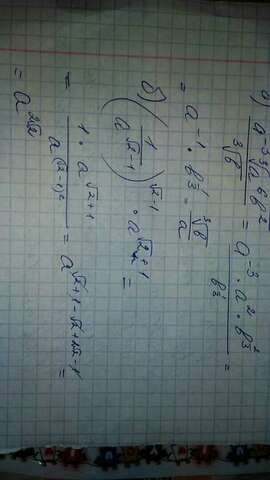 а) a⁻³ ∛(a⁶b²) / ∛b = a⁻³ · a² · b^(2/3) / b^(1/3) =
= a⁻¹ · b^(1/3) = ∛b / a
б) (1 / a^(√2-1))^(√2-1) · a^(√2+1) =
= 1 · a^(√2+1) / a^((√2-1)²) = a^(√2+1-√2+2√2-1) =
= a^(2√2)